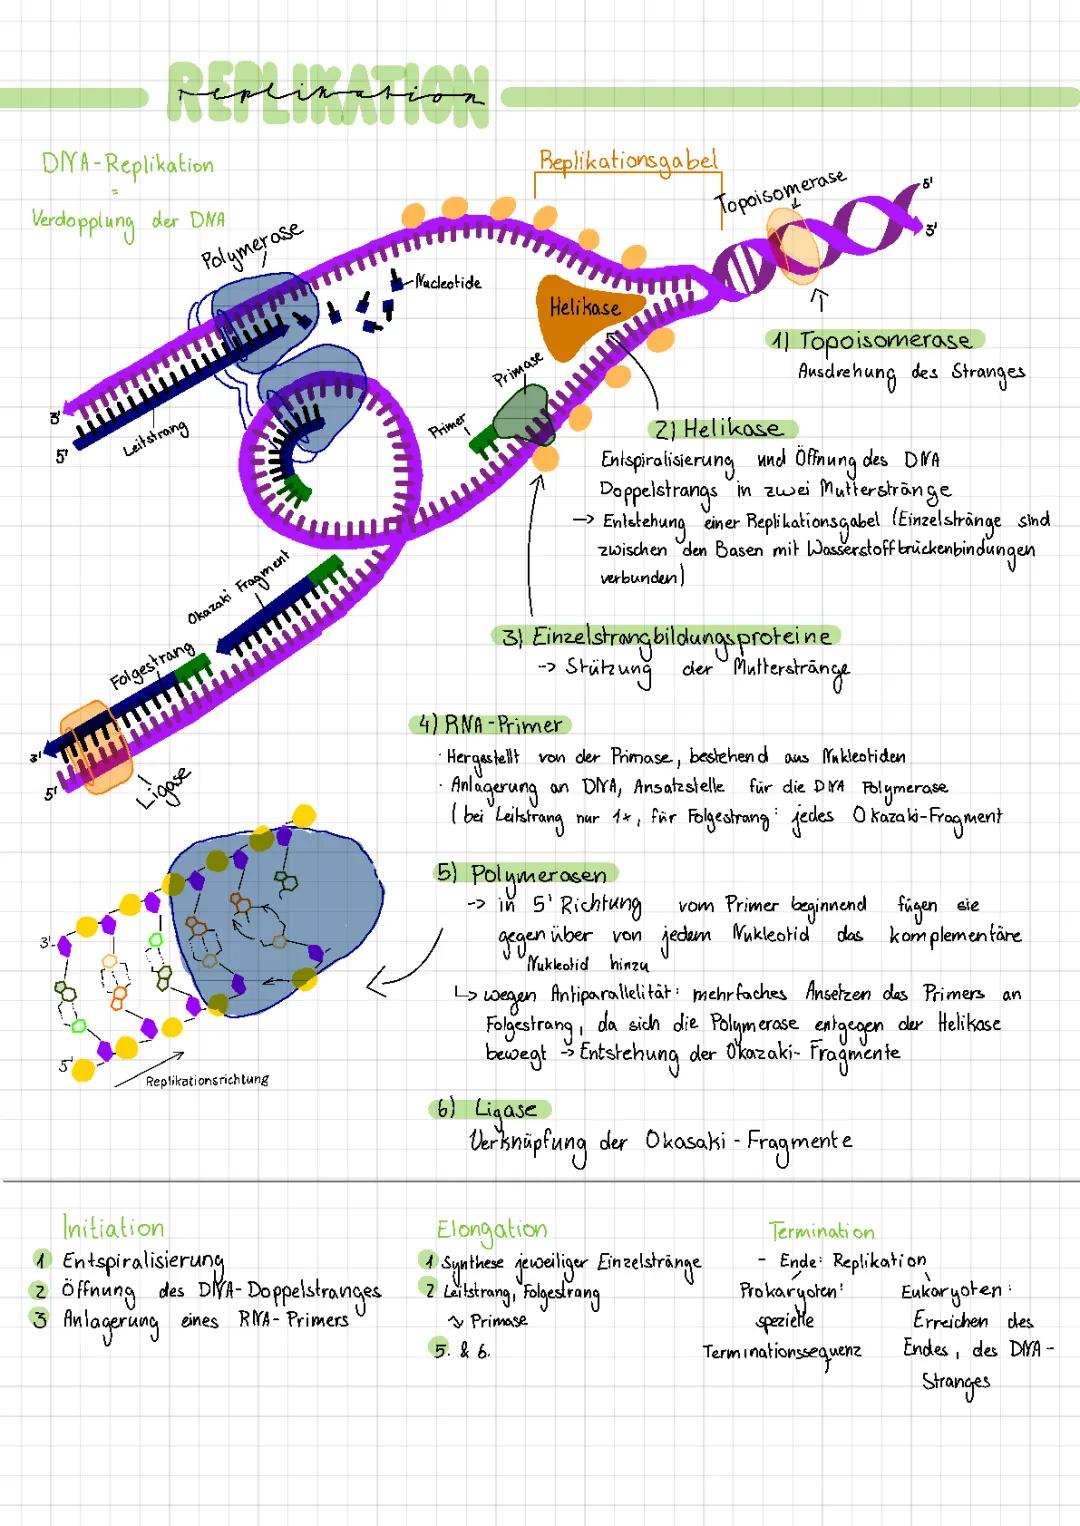 REPLIKATION
replikation
DNA-Replikation
=
Verdopplung der DNA
Replikationsgabel
Topoisomerase
5'
3'
Polymerase
Nucleotide
Helikase
Primase
Primer
3'
5'
Leitstrang
1) Topoisomerase
Ausdrehung des Stranges
2) Helikase
Entspiralisierung und Öffnung des DNA
Doppelstrangs in zwei Mutterstränge
-> Entstehung einer Replikationsgabel (Einzelstränge sind
zwischen den Basen mit Wasserstoffbrückenbindungen
verbunden)
Okazaki Fragment
Folgestrang
3'
5'
Ligase
3) Einzelstrangbildungsproteine
-> Stützung der Mutterstränge
4) RNA-Primer
· Hergestellt von der Primase, bestehend aus Nukleotiden
· Anlagerung an DNA, Ansatzstelle für die DNA Polymerase
(bei Leitstrang nur 1x, für Folgestrang: jedes Okazaki-Fragment
5) Polymerasen
-> in 5' Richtung vom Primer beginnend fügen sie
gegenüber von jedem Nukleotid das komplementäre
Nukleotid hinzu
↳ wegen Antiparallelität: mehrfaches Ansetzen des Primers an
Folgestrang, da sich die Polymerase entgegen der Helikase
bewegt -> Entstehung der Okazaki-Fragmente
3'
5'
Replikationsrichtung
6) Ligase
Verknüpfung der Okasaki-Fragmente
Initiation
1 Entspiralisierung
2 Öffnung des DNA-Doppelstranges
3 Anlagerung eines RNA-Primers
Elongation
1 Synthese jeweiliger Einzelstränge
2 Leitstrang, Folgestrang
↳ Primase
5. & 6.
Termination
- Ende: Replikation
Prokaryoten:
spezielle
Terminationssequenz
Eukaryoten:
Erreichen des
Endes, des DNA-
Stranges